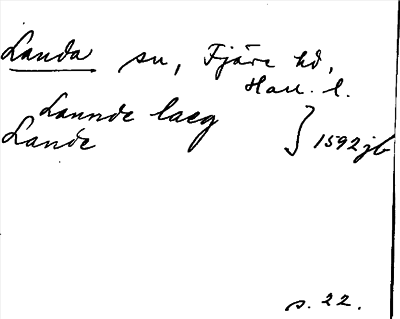 Landa sn, Fjäre hd,
Hall. l.
Launde laeg
Lande } 1592 jb
s. 22.